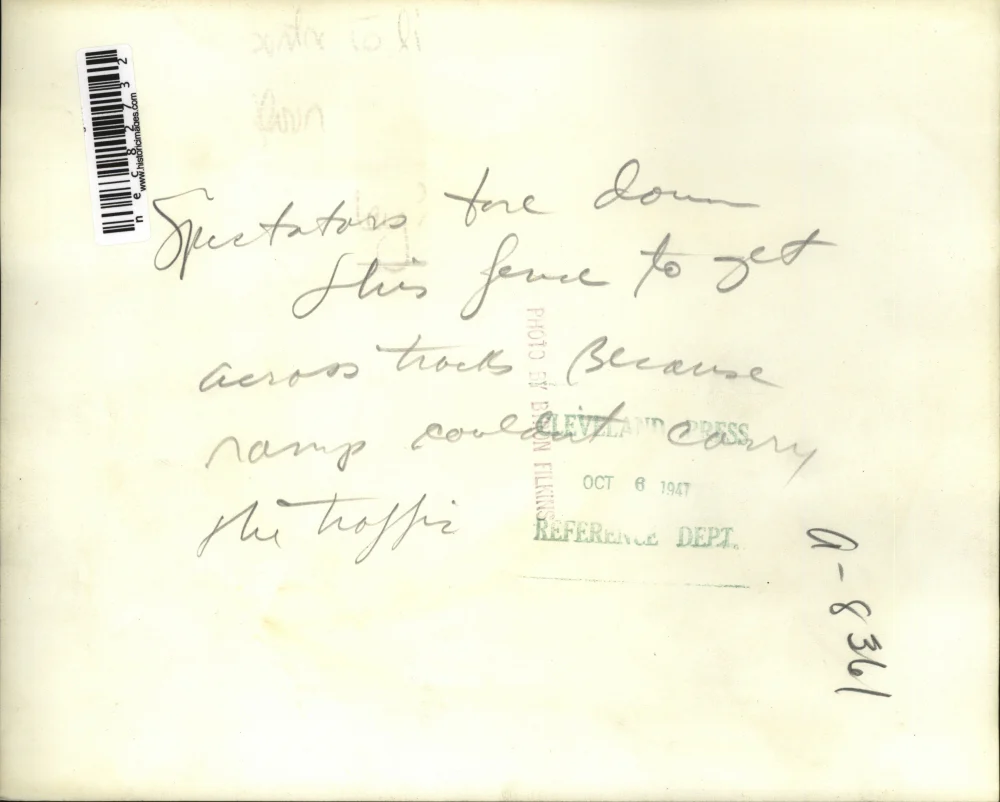 Spectators tore down
this fence to get
across tracks Because
ramp couldnt carry
the traffic
PHOTO BY BYRON FILKINS
CLEVELAND PRESS
OCT 6 1947
REFERENCE DEPT.
a-8361
www.historicimages.com